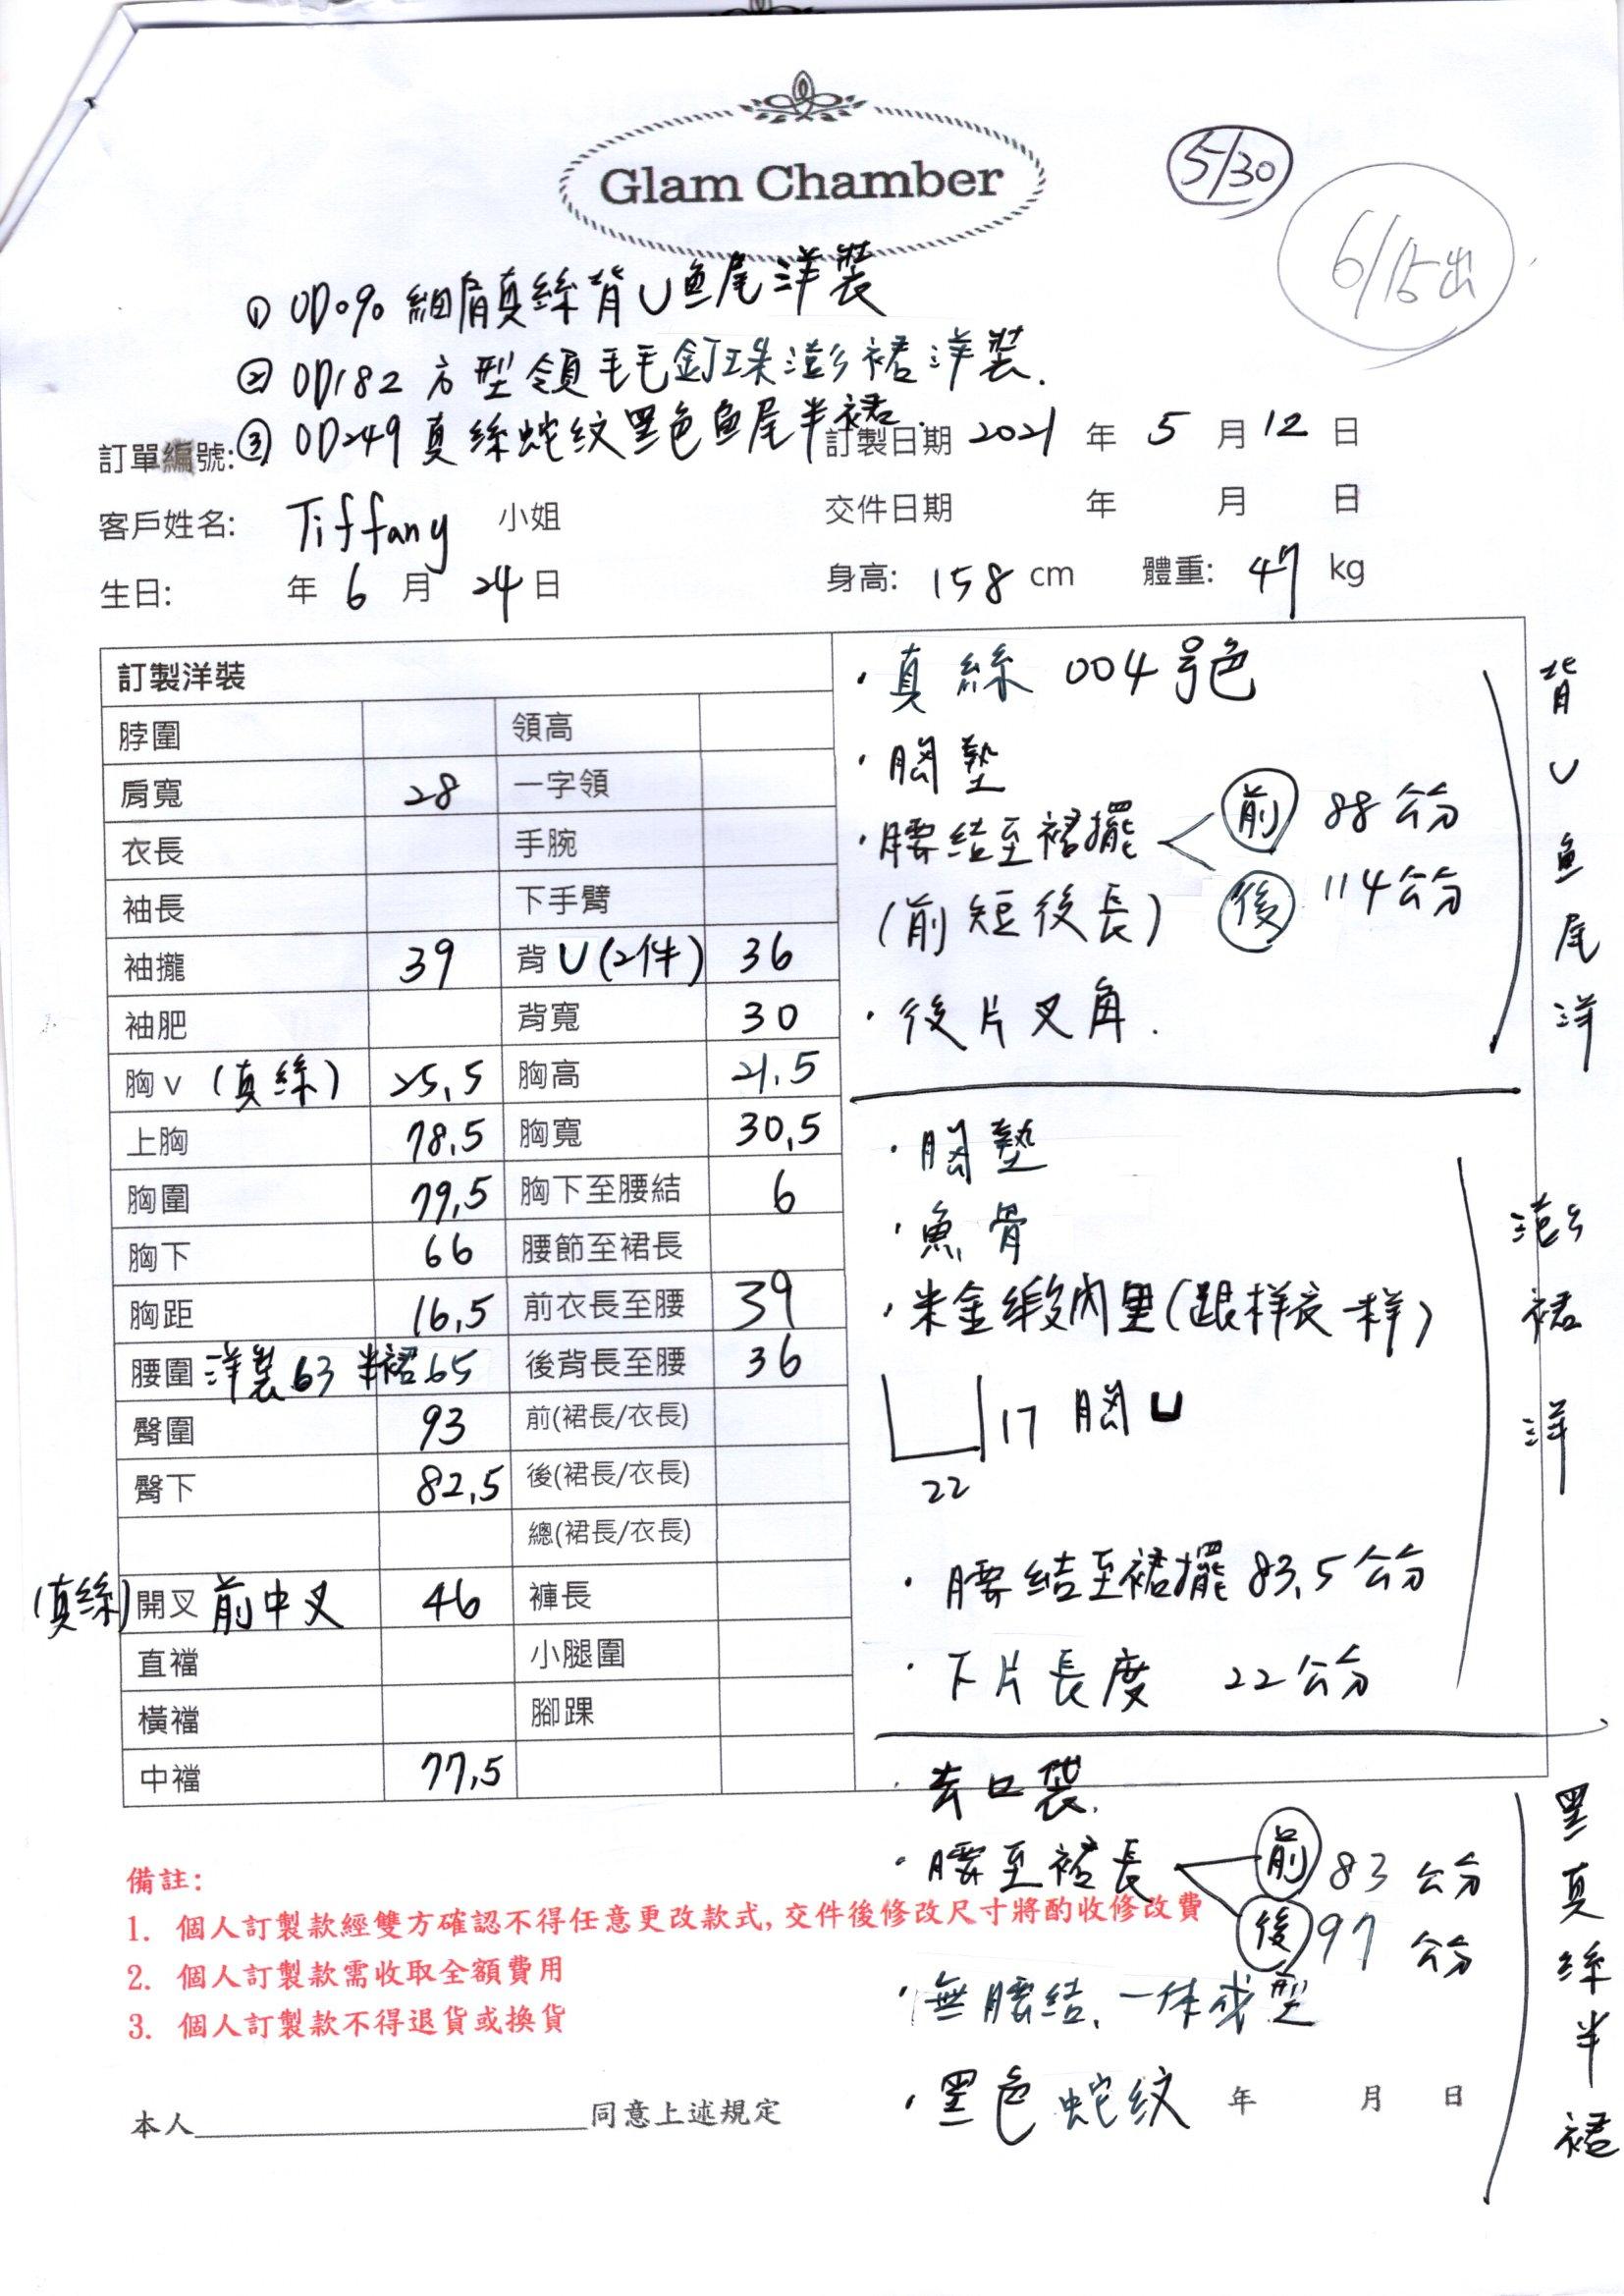 Glam Chamber
5/30
6/15出
① OD090 細肩真絲背U魚尾洋裝
② OD182 方型領毛毛釘珠澎裙洋裝.
訂單編號: ③ OD249 真絲蛇紋黑色魚尾半裙. 訂製日期 2021 年 5 月 12 日
客戶姓名: Tiffany 小姐 交件日期 年 月 日
生日: 年 6 月 24 日 身高: 158 cm 體重: 47 kg
訂製洋裝
脖圍 領高
肩寬 28 一字領
衣長 手腕
袖長 下手臂
袖攏 39 背U(2件) 36
袖肥 背寬 30
胸v (真絲) 25.5 胸高 21.5
上胸 78.5 胸寬 30.5
胸圍 79.5 胸下至腰結 6
胸下 66 腰節至裙長
胸距 16.5 前衣長至腰 39
腰圍 洋裝63 半裙65 後背長至腰 36
臀圍 93 前(裙長/衣長)
臀下 82.5 後(裙長/衣長)
總(裙長/衣長)
(真絲) 開叉 前中叉 46 褲長
直襠 小腿圍
橫襠 腳踝
中襠 77.5
・真絲 004号色
・胸墊
・腰結至裙擺 前 88 公分
(前短後長) 後 114 公分
・後片叉角.
背U魚尾洋
・胸墊
・魚骨
・米金緞內里(跟样衣一样)
17 胸U
22
・腰结至裙擺 83.5 公分
・下片長度 22 公分
澎裙洋
・去口袋.
・腰至裙長 前 83 公分
後 97 公分
・無腰結、一体成型
・黑色蛇紋
黑真絲半裙
備註:
1. 個人訂製款經雙方確認不得任意更改款式, 交件後修改尺寸將酌收修改費
2. 個人訂製款需收取全額費用
3. 個人訂製款不得退貨或換貨
本人____________________同意上述規定 年 月 日